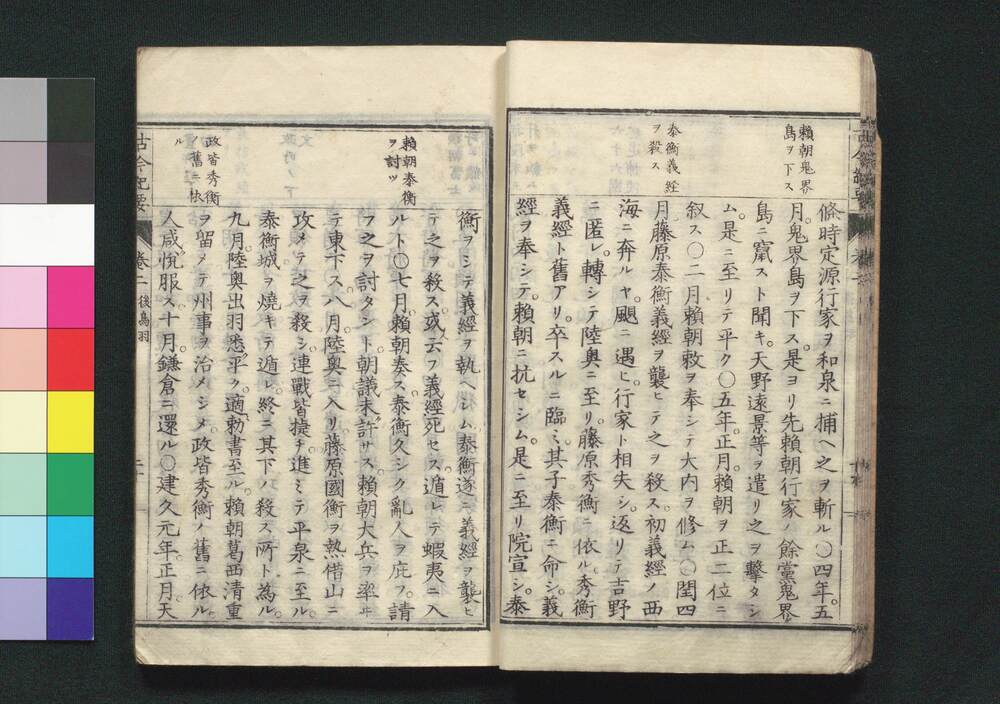 賴朝鬼界
島ヲ下ス
泰衡義經
ヲ殺ス
條時定源行家ヲ和泉ニ捕ヘ之ヲ斬ル〇四年。五
月。鬼界島ヲ下ス。是ヨリ先賴朝行家ノ餘黨鬼界
島ニ竄スト聞キ。天野遠景等ヲ遣リ之ヲ擊タシ
ム。是ニ至リテ平ク〇五年。正月。賴朝ヲ正二位ニ
叙ス〇二月賴朝敕ヲ奉シテ大内ヲ修ム〇閏四
月藤原泰衡義經ヲ襲ヒテ之ヲ殺ス。初義經ノ西
海ニ奔ルヤ。颶ニ遇ヒ。行家ト相失シ。返リテ吉野
ニ匿レ。轉シテ陸奧ニ至リ。藤原秀衡ニ依ル。秀衡
義經ト舊アリ。卒スルニ臨ミ。其子泰衡ニ命シ。義
經ヲ奉シテ。賴朝ニ抗セシム。是ニ至リ院宣シ。泰
賴朝泰衡
ヲ討ツ
政皆秀衡
ノ舊ニ依
ル
衡ヲシテ義經ヲ執ヘシム。泰衡遂ニ義經ヲ襲ヒ
テ之ヲ殺ス。或云フ義經死セス。遁レテ蝦夷ニ入
ルト〇七月。賴朝奏ス。泰衡久シク亂人ヲ庇フ。請
フ之ヲ討タント。朝議未許サス。賴朝大兵ヲ率ヰ
テ東下ス。八月。陸奧ニ入リ藤原國衡ヲ熱借山ニ
攻メテ之ヲ殺シ。連戰皆捷チ。進ミテ平泉ニ至ル。
泰衡城ヲ燒キテ遁レ。終ニ其下ノ殺ス所ト為ル。
九月。陸奧出羽悉平ク。適勅書至ル。賴朝葛西清重
ヲ留メテ州事ヲ治メシメ。政皆秀衡ノ舊ニ依ル。
人咸悅服ス。十月。鎌倉ニ還ル〇建久元年。正月。天
古今紀要 卷二 後鳥羽